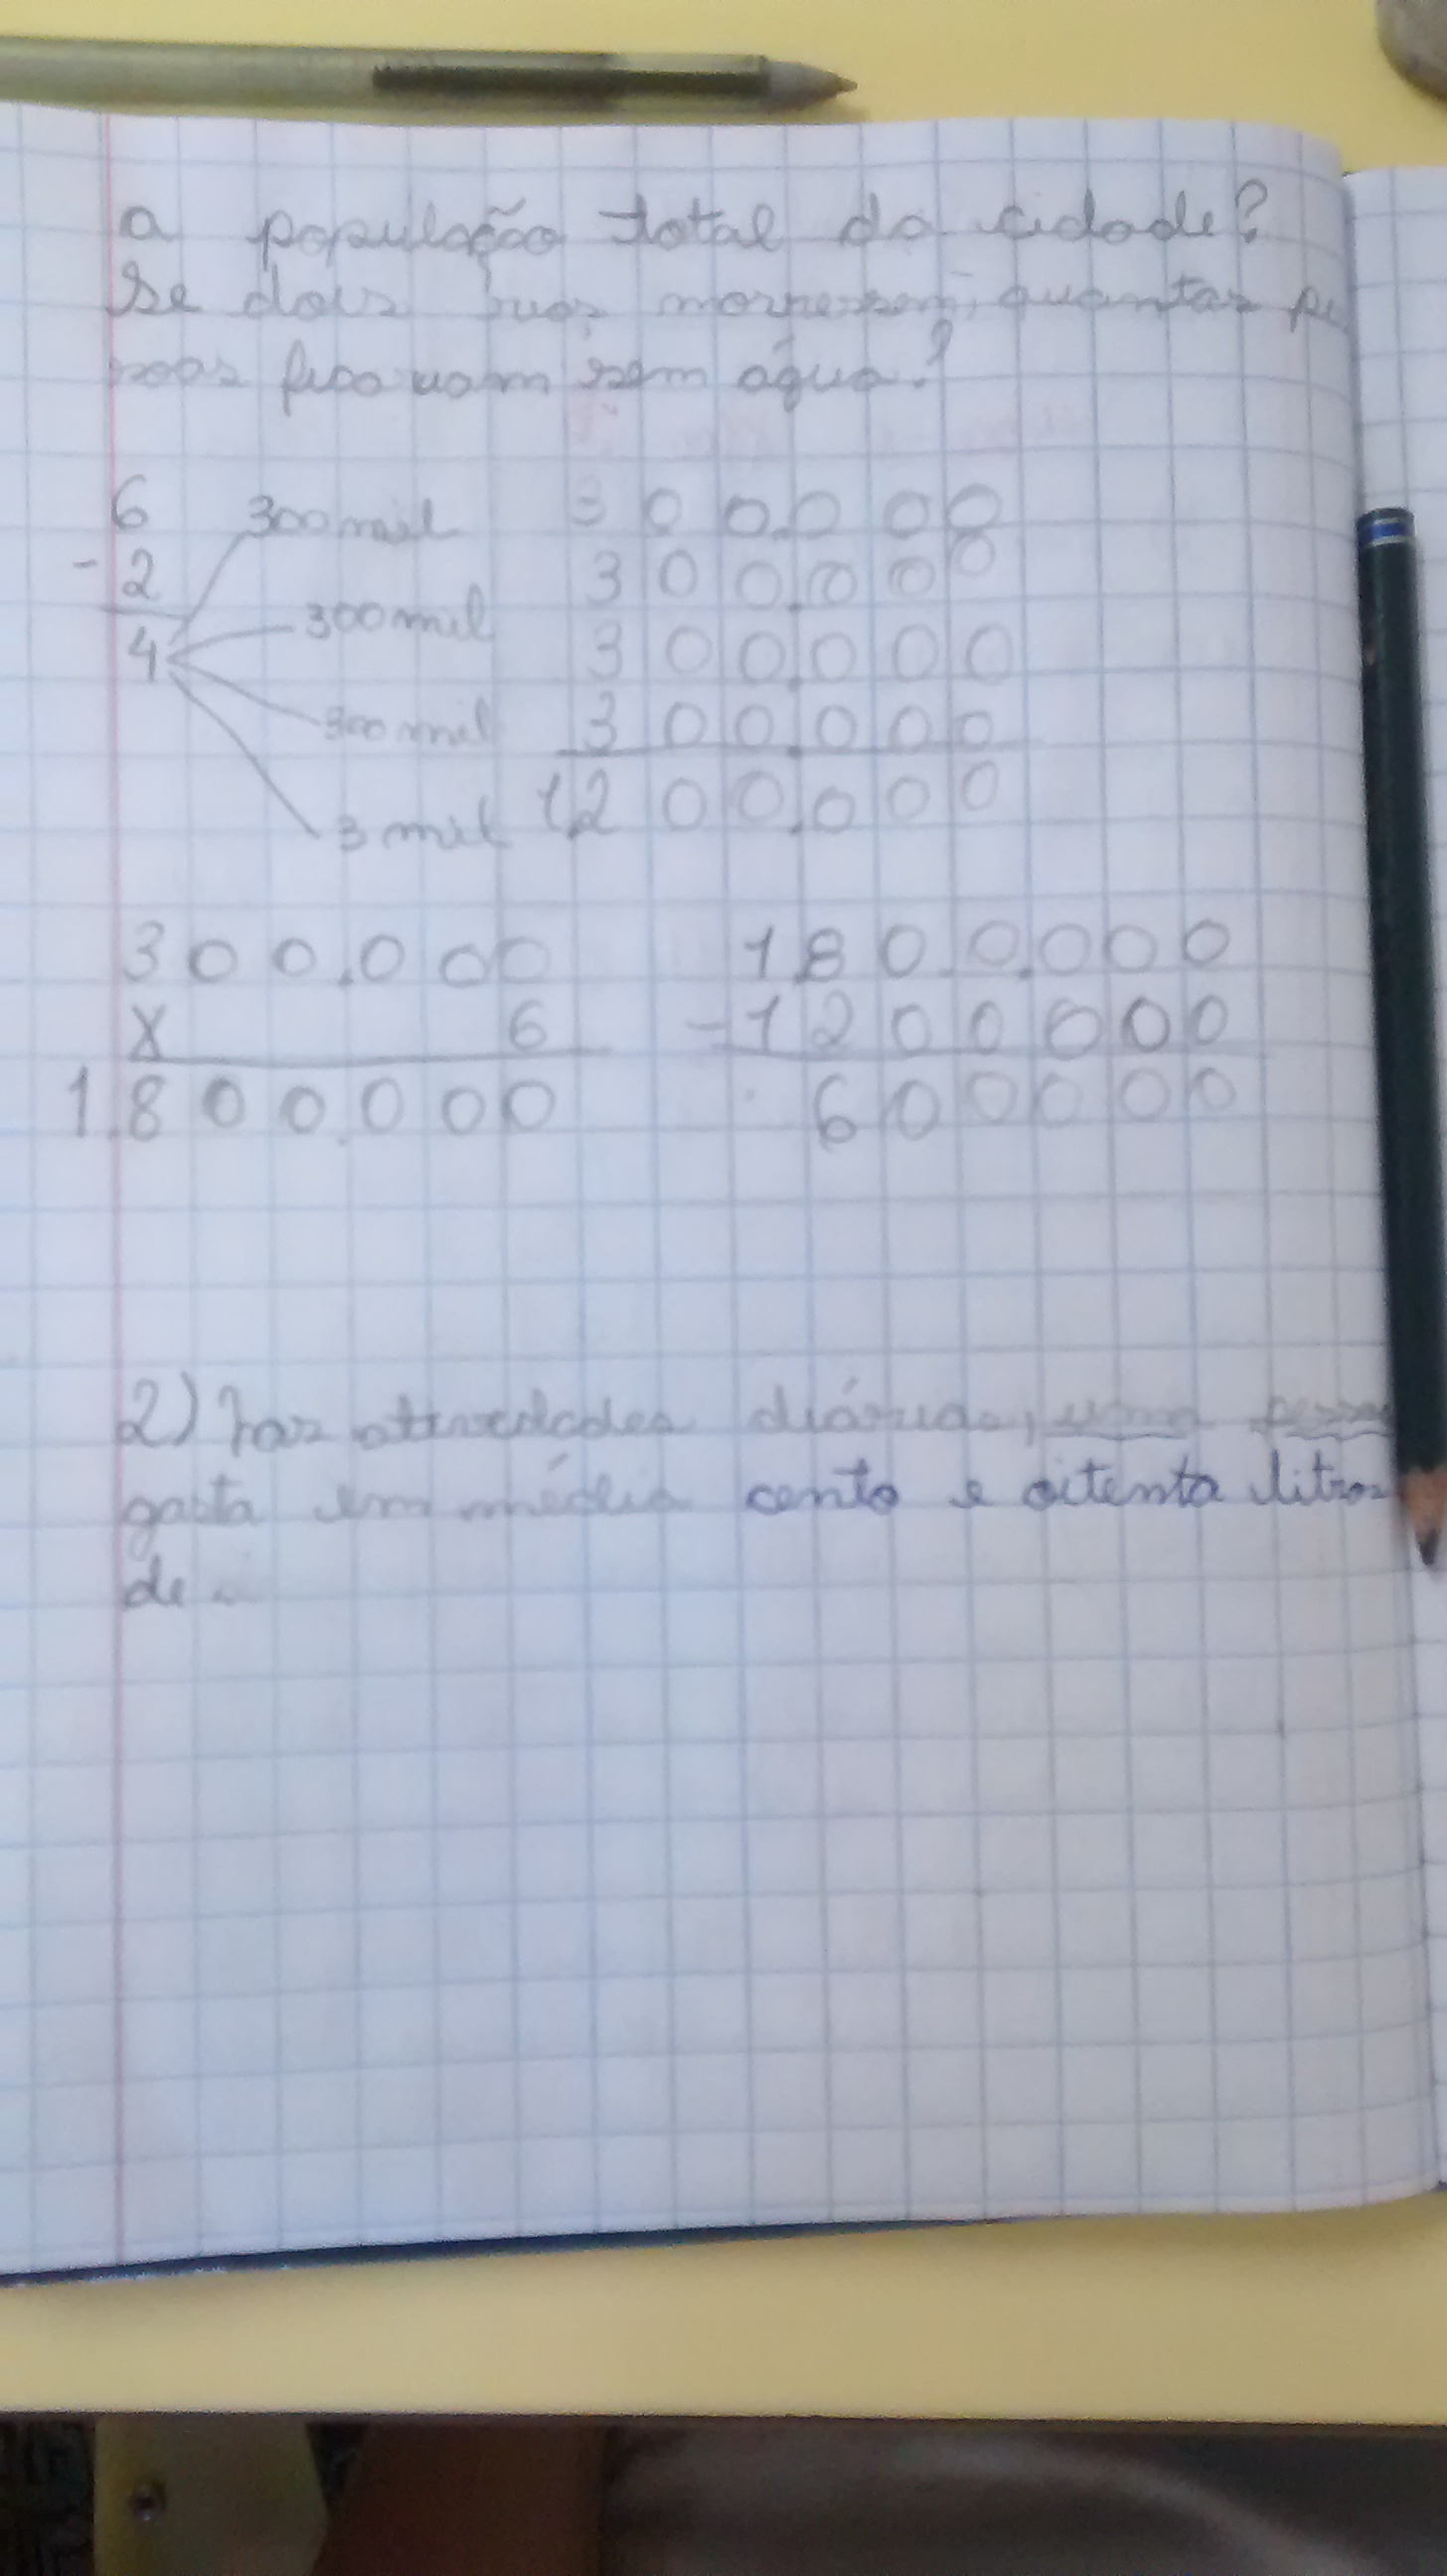 a população total da cidade?
Se dois rios morressem, quantas pe
ssoas ficavam sem água?
6 300 mil 300.000
- 2 300.000
4 300 mil 300.000
300 mil 300.000
3 mil 1.200.000
300.000 1.800.000
x 6 - 1200000
1.800.000 600000
2) Nas atividades diárias, uma pessoa
gasta em média cento e oitenta litros
de